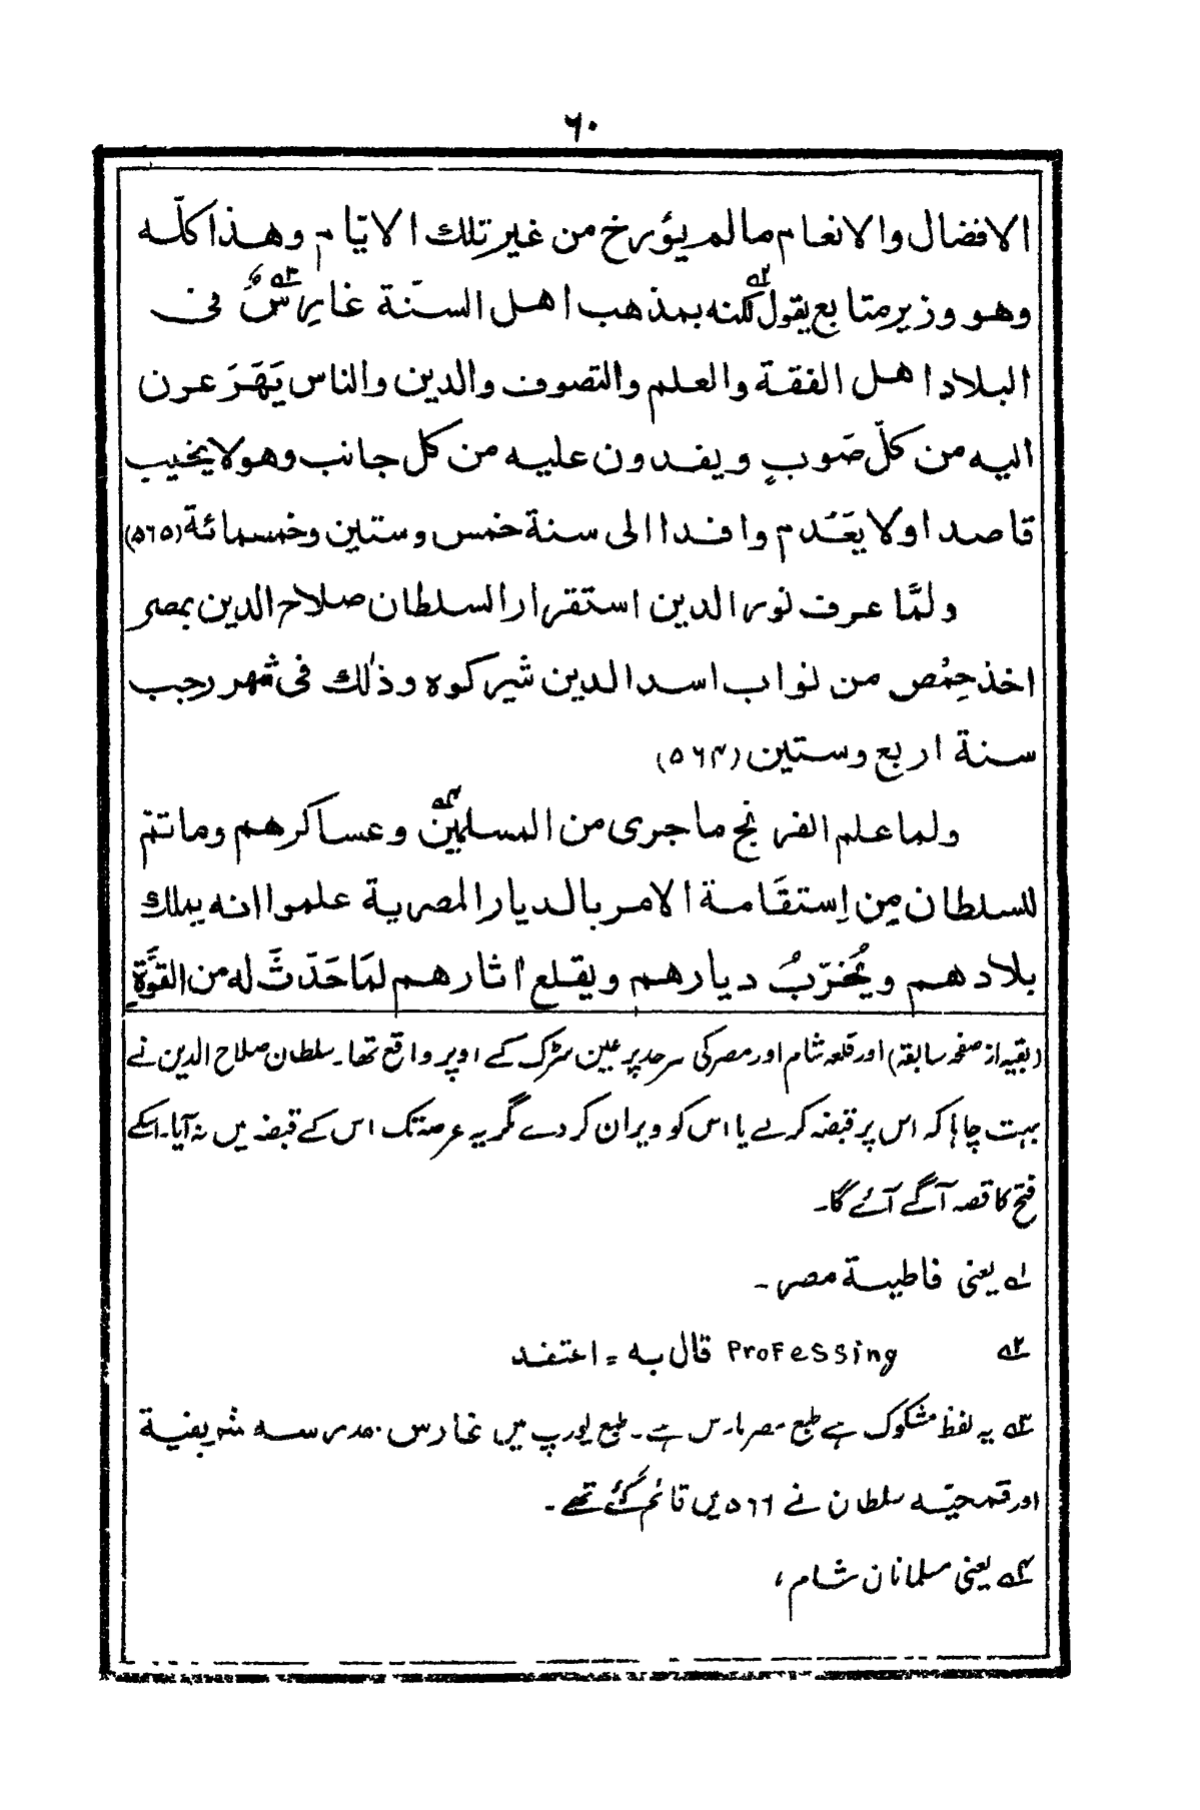 ٦٠
الافضال والانعام مالم یؤرخ من غیر تلك الایّام وھذا کلّه
وھو وزیر متابع یقول۲ لکنه بمذھب اھل السنّة غارِسٌ۳ فی
البلاد اھل الفقة والعلم والتصوف والدین والناس یَھَرَعون
الیه من کلّ صَوبٍ ویفدون علیه من کل جانب وھو لا یخیب
قاصدا ولا یعَدم وافدا الی سنة خمس وستین وخمسمائة (۵٦۵)
ولمَّا عرف نور الدین استقرار السلطان صلاح الدین بمصر
اخذ حِمُص من نواب اسد الدین شیرکوہ وذٰلك فی شھر رجب
سنة اربع وستین (۵٦۴)
ولما علم الفرنج ماجری من المسلمین۴ وعساکرھم وما تتم
للسلطان مِن اِستقَامة الامر بالدیار المصریة علموا انه یملك
بلادھم ویُخرّبُ دیارھم ویقلع اثارھم لمَا حَدَثَ له من القوَّۃِ
(بقیه از صفحہ سابقہ) اور قلعہ شام اور مصر کی سرحد پر عین سڑک کے اوپر واقع تھا۔ سلطان صلاح الدین نے
بہت چاہا کہ اس پر قبضہ کرلے یا اس کو ویران کردے مگر یہ عرصہ تک اس کے قبضہ میں نہ آیا۔ اسکے
فتح کا قصہ آگے آئے گا۔
۱ یعنی فاطمیة مصر۔
۲ Professing قال به = اعتقد
۳ یہ لفظ مشکوک ہے طبع مصر مارس ہے۔ طبع یورپ میں غارس۔ مدرسه شریفیة
اور قمحیّه سلطان نے ۵٦٦ میں قائم کئے تھے۔
۴ یعنی مسلمانان شام،